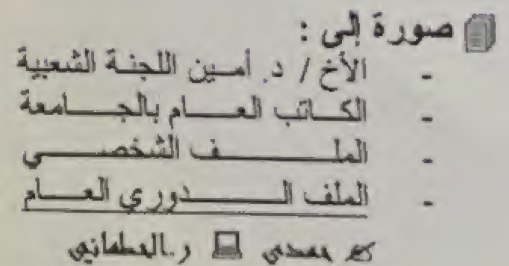 صورة إلى :
- الأخ / د. أمين اللجنة الشعبية
- الكاتب العام بالجامعة
- الملف الشخصي
- الملف الدوري العام
حمدي ر.العطماني